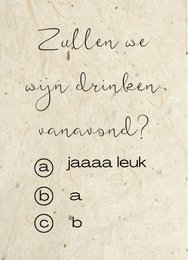 Zullen we
wijn drinken
vanavond?
a jaaaa leuk
b a
c b